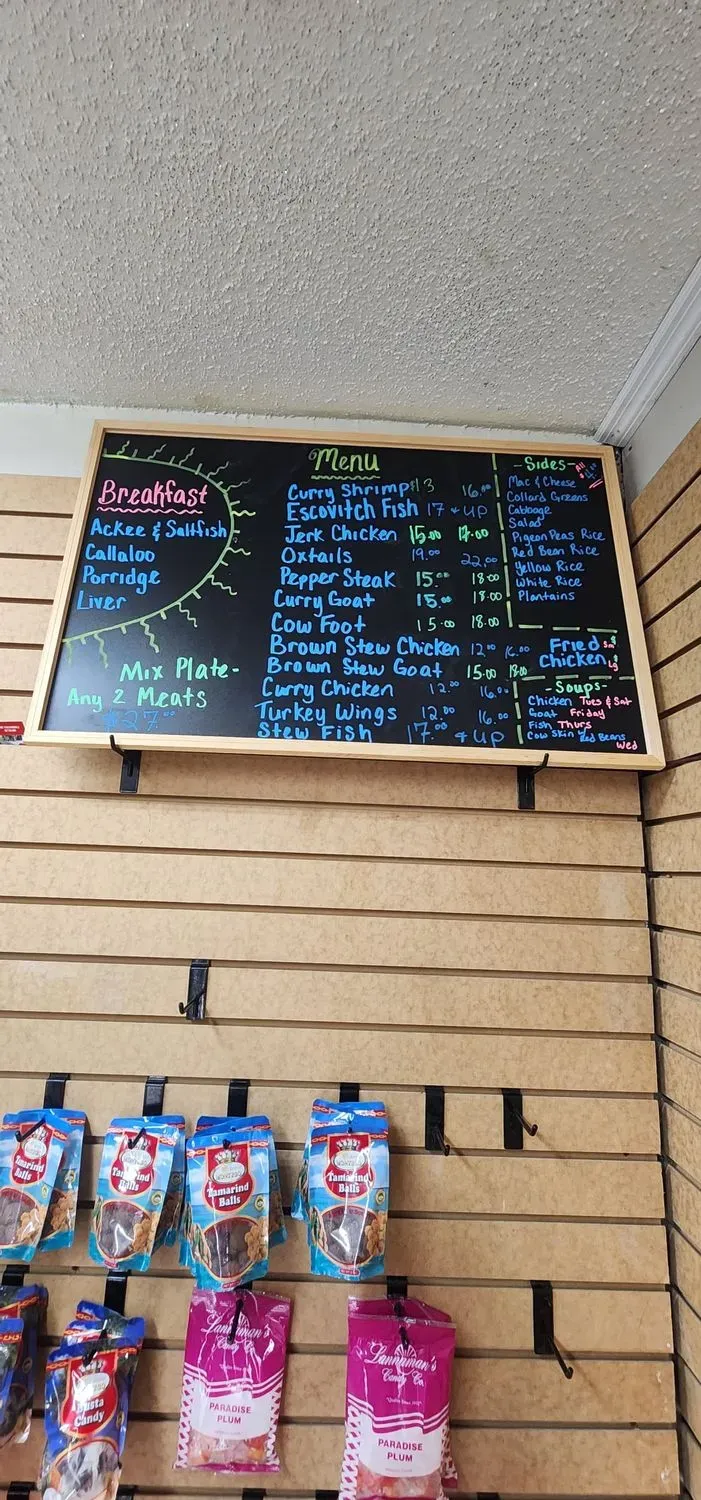 Breakfast
Ackee & Saltfish
Callaloo
Porridge
Liver
Mix Plate-
Any 2 Meats
$27.00
Menu
Curry Shrimp $13 16.00
Escovitch Fish 17 & up
Jerk Chicken 15.00 17.00
Oxtails 19.00 22.00
Pepper Steak 15.00 18.00
Curry Goat 15.00 18.00
Cow Foot 15.00 18.00
Brown Stew Chicken 12.00 16.00
Brown Stew Goat 15.00 18.00
Curry Chicken 12.00 16.00
Turkey Wings 12.00 16.00
Stew Fish 17.00 & up
-Sides-
All
Mac & Cheese
Collard Greens
Cabbage
Salad
Pigeon Peas Rice
Red Bean Rice
Yellow Rice
White Rice
Plantains
Fried Sm
Chicken Lg
-Soups-
Chicken Tues & Sat
Goat Friday
Fish Thurs
Cow Skin Red Beans
Wed
Tamarind
Balls
Tamarind
Balls
Tamarind
Balls
Tamarind
Balls
Busta
Candy
Lannaman's
Candy Co.
PARADISE
PLUM
Lannaman's
Candy Co.
PARADISE
PLUM